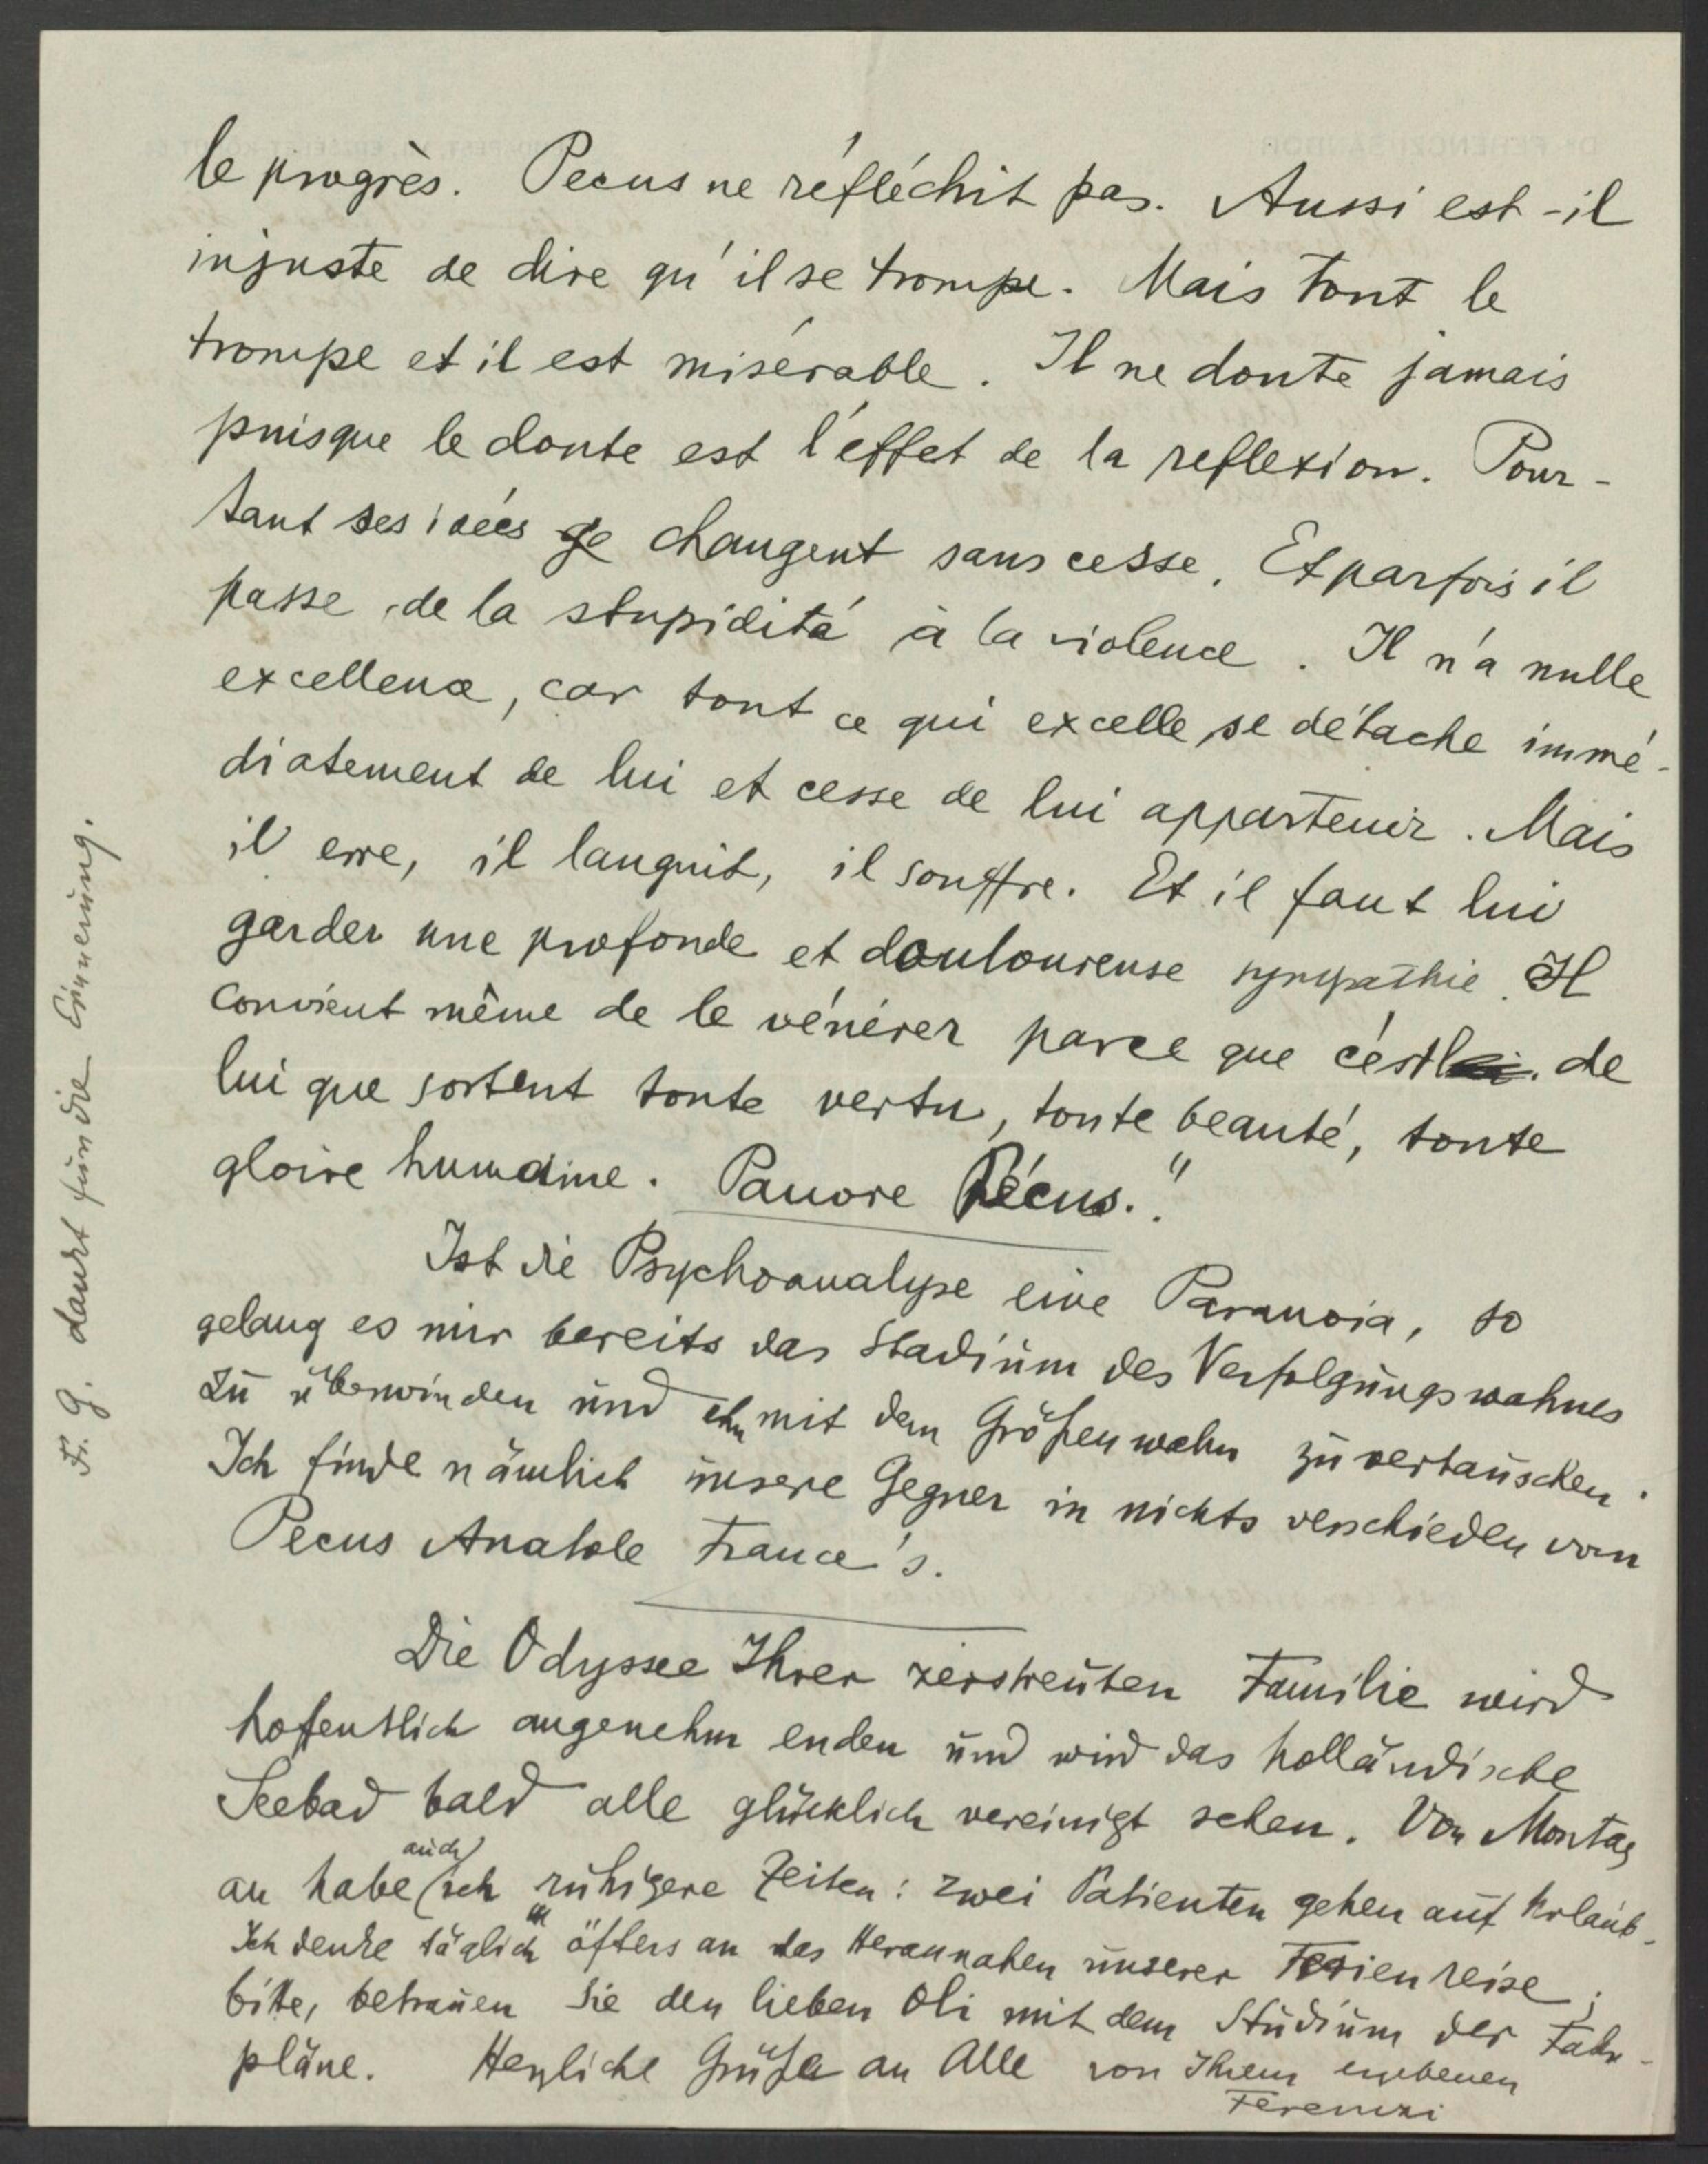 le progrès. Pecus ne réfléchit pas. Aussi est-il
injuste de dire qu'il se trompe. Mais tout le
trompe et il est misérable. Il ne doute jamais
puisque le doute est l'effet de la reflexion. Pour-
tant ses idées changent sans cesse. Et parfois il
passe de la stupidité à la violence. Il n'a nulle
excellence, car tout ce qui excelle se détache immé-
diatement de lui et cesse de lui appartenir. Mais
il erre, il languit, il souffre. Et il faut lui
garder une profonde et douloureuse sympathie. Il
convient même de le vénérer parce que c'est de
lui que sortent toute vertu, toute beauté, toute
gloire humaine. Pauvre Pécus."
Ist die Psychoanalyse eine Paranoia, so
gelang es mir bereits das Stadium des Verfolgungswahnes
zu überwinden und ihn mit dem Größenwahn zu vertauschen.
Ich finde nämlich unsere Gegner in nichts verschieden vom
Pecus Anatole France's.
Die Odyssee Ihrer zerstreuten Familie wird
hoffentlich angenehm enden und wird das holländische
Seebad bald alle glücklich vereinigt sehen. Von Montag
an habe auch ich ruhigere Zeiten: zwei Patienten gehen auf Urlaub.
Ich denke täglich öfters an das Herannahen unserer Ferienreise;
bitte, betrauen Sie den lieben Oli mit dem Studium der Fahr-
pläne. Herzliche Grüße an Alle von Ihrem ergebenen
Ferenczi
Fr. G. dankt für die Erinnerung.